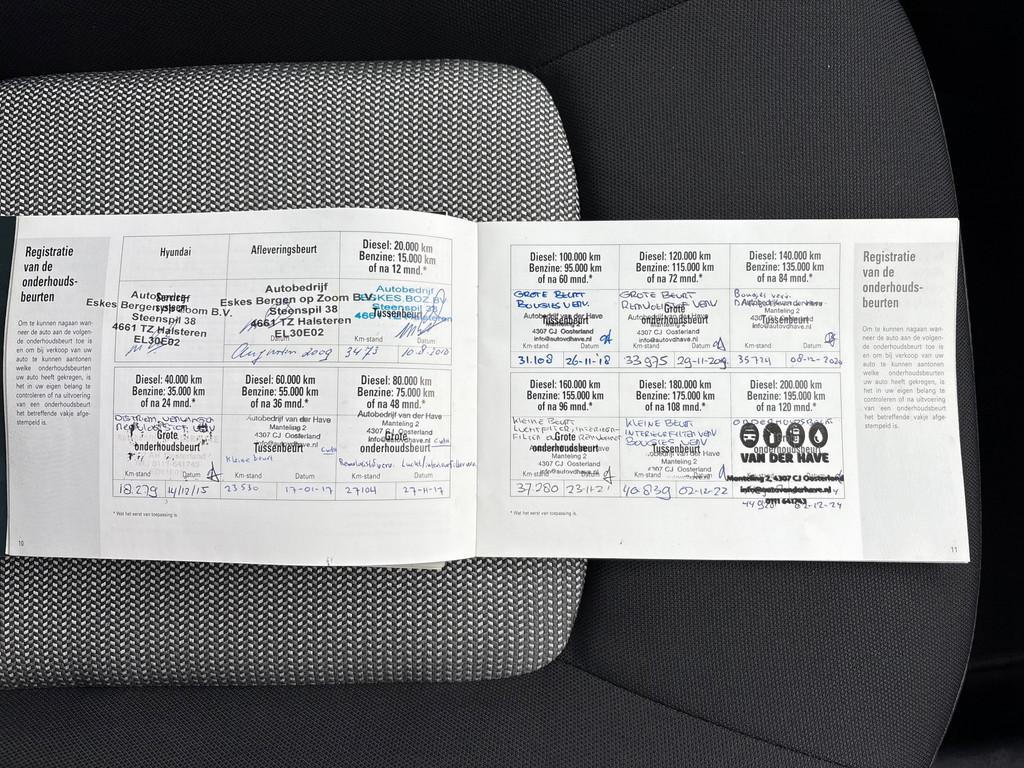 Registratie
van de
onderhouds-
beurten
Om te kunnen nagaan wan-
neer de auto aan de volgen-
de onderhoudsbeurt toe is
en om bij verkoop van uw
auto te kunnen aantonen
welke onderhoudsbeurten
uw auto heeft gekregen, is
het in uw eigen belang te
controleren of na uitvoering
van een onderhoudsbeurt
het betreffende vakje afge-
stempeld is.
10
Hyundai
Autobedrijf
Eskes Bergen op Zoom B.V.
Steenspil 38
4661 TZ Halsteren
EL30E02
Afleveringsbeurt
Autobedrijf
Eskes Bergen op Zoom B.V.
Steenspil 38
4661 TZ Halsteren
EL30E02
Datum
Augustus 2009
Diesel: 20.000 km
Benzine: 15.000 km
of na 12 mnd.*
Autobedrijf
ESKES.BOZ.BV
Steenspil 38
Tussenbeurt
Km-stand Datum
3473 10.8.2010
Diesel: 40.000 km
Benzine: 35.000 km
of na 24 mnd.*
Grote
onderhoudsbeurt
Km-stand Datum
18.279 14/12/15
Diesel: 60.000 km
Benzine: 55.000 km
of na 36 mnd.*
Autobedrijf van der Have
Manteling 2
4307 CJ Oosterland
Tussenbeurt
Kleine beurt
Km-stand Datum
23530 17-01-17
Diesel: 80.000 km
Benzine: 75.000 km
of na 48 mnd.*
Autobedrijf van der Have
Manteling 2
4307 CJ Oosterland
Grote
onderhoudsbeurt
Km-stand Datum
27104 27-11-17
* Wat het eerst van toepassing is.
Diesel: 100.000 km
Benzine: 95.000 km
of na 60 mnd.*
GROTE BEURT
BOUGIES VERV.
Autobedrijf van der Have
Tussenbeurt
4307 CJ Oosterland
info@autovdhave.nl
Km-stand Datum
31.108 26-11-'18
Diesel: 120.000 km
Benzine: 115.000 km
of na 72 mnd.*
GROTE BEURT
REMVLOEISTOF VERV
Autobedrijf van der Have
Grote
Manteling 2
onderhoudsbeurt
4307 CJ Oosterland
info@autovdhave.nl
Km-stand Datum
33975 29-11-2019
Diesel: 140.000 km
Benzine: 135.000 km
of na 84 mnd.*
Bougies verv.
Autobedrijf van der Have
Manteling 2
Tussenbeurt
4307 CJ Oosterland
info@autovdhave.nl
Km-stand Datum
35724 08-12-2020
Diesel: 160.000 km
Benzine: 155.000 km
of na 96 mnd.*
KLEINE BEURT
LUCHTFILTER, INTERIEUR-
Grote
onderhoudsbeurt
Manteling 2
4307 CJ Oosterland
info@autovdhave.nl
Km-stand Datum
37.280 23-11-21
Diesel: 180.000 km
Benzine: 175.000 km
of na 108 mnd.*
KLEINE BEURT
INTERIEURFILTER VERV
BOUGIES VERV
Tussenbeurt
Autobedrijf van der Have
Manteling 2
4307 CJ Oosterland
info@autovdhave.nl
Km-stand Datum
40.839 02-12-22
Diesel: 200.000 km
Benzine: 195.000 km
of na 120 mnd.*
ONDERHOUDSBEURT
onderhoudsbeurt
VAN DER HAVE
Manteling 2, 4307 CJ Oosterland
0111 641743
* Wat het eerst van toepassing is.
Registratie
van de
onderhouds-
beurten
Om te kunnen nagaan wan-
neer de auto aan de volgen-
de onderhoudsbeurt toe is
en om bij verkoop van uw
auto te kunnen aantonen
welke onderhoudsbeurten
uw auto heeft gekregen, is
het in uw eigen belang te
controleren of na uitvoering
van een onderhoudsbeurt
het betreffende vakje afge-
stempeld is.
11